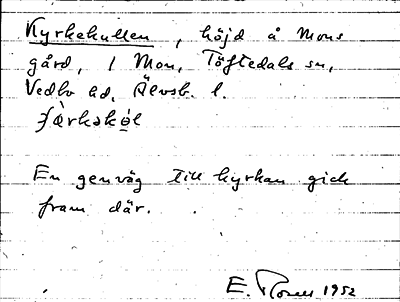 Kyrkekullen, höjd å Mons
gård, 1 Mon, Töftedals sn,
Vedbo hd, Älvsb. l.
En genväg till kyrkan gick
fram där.
E. 1952